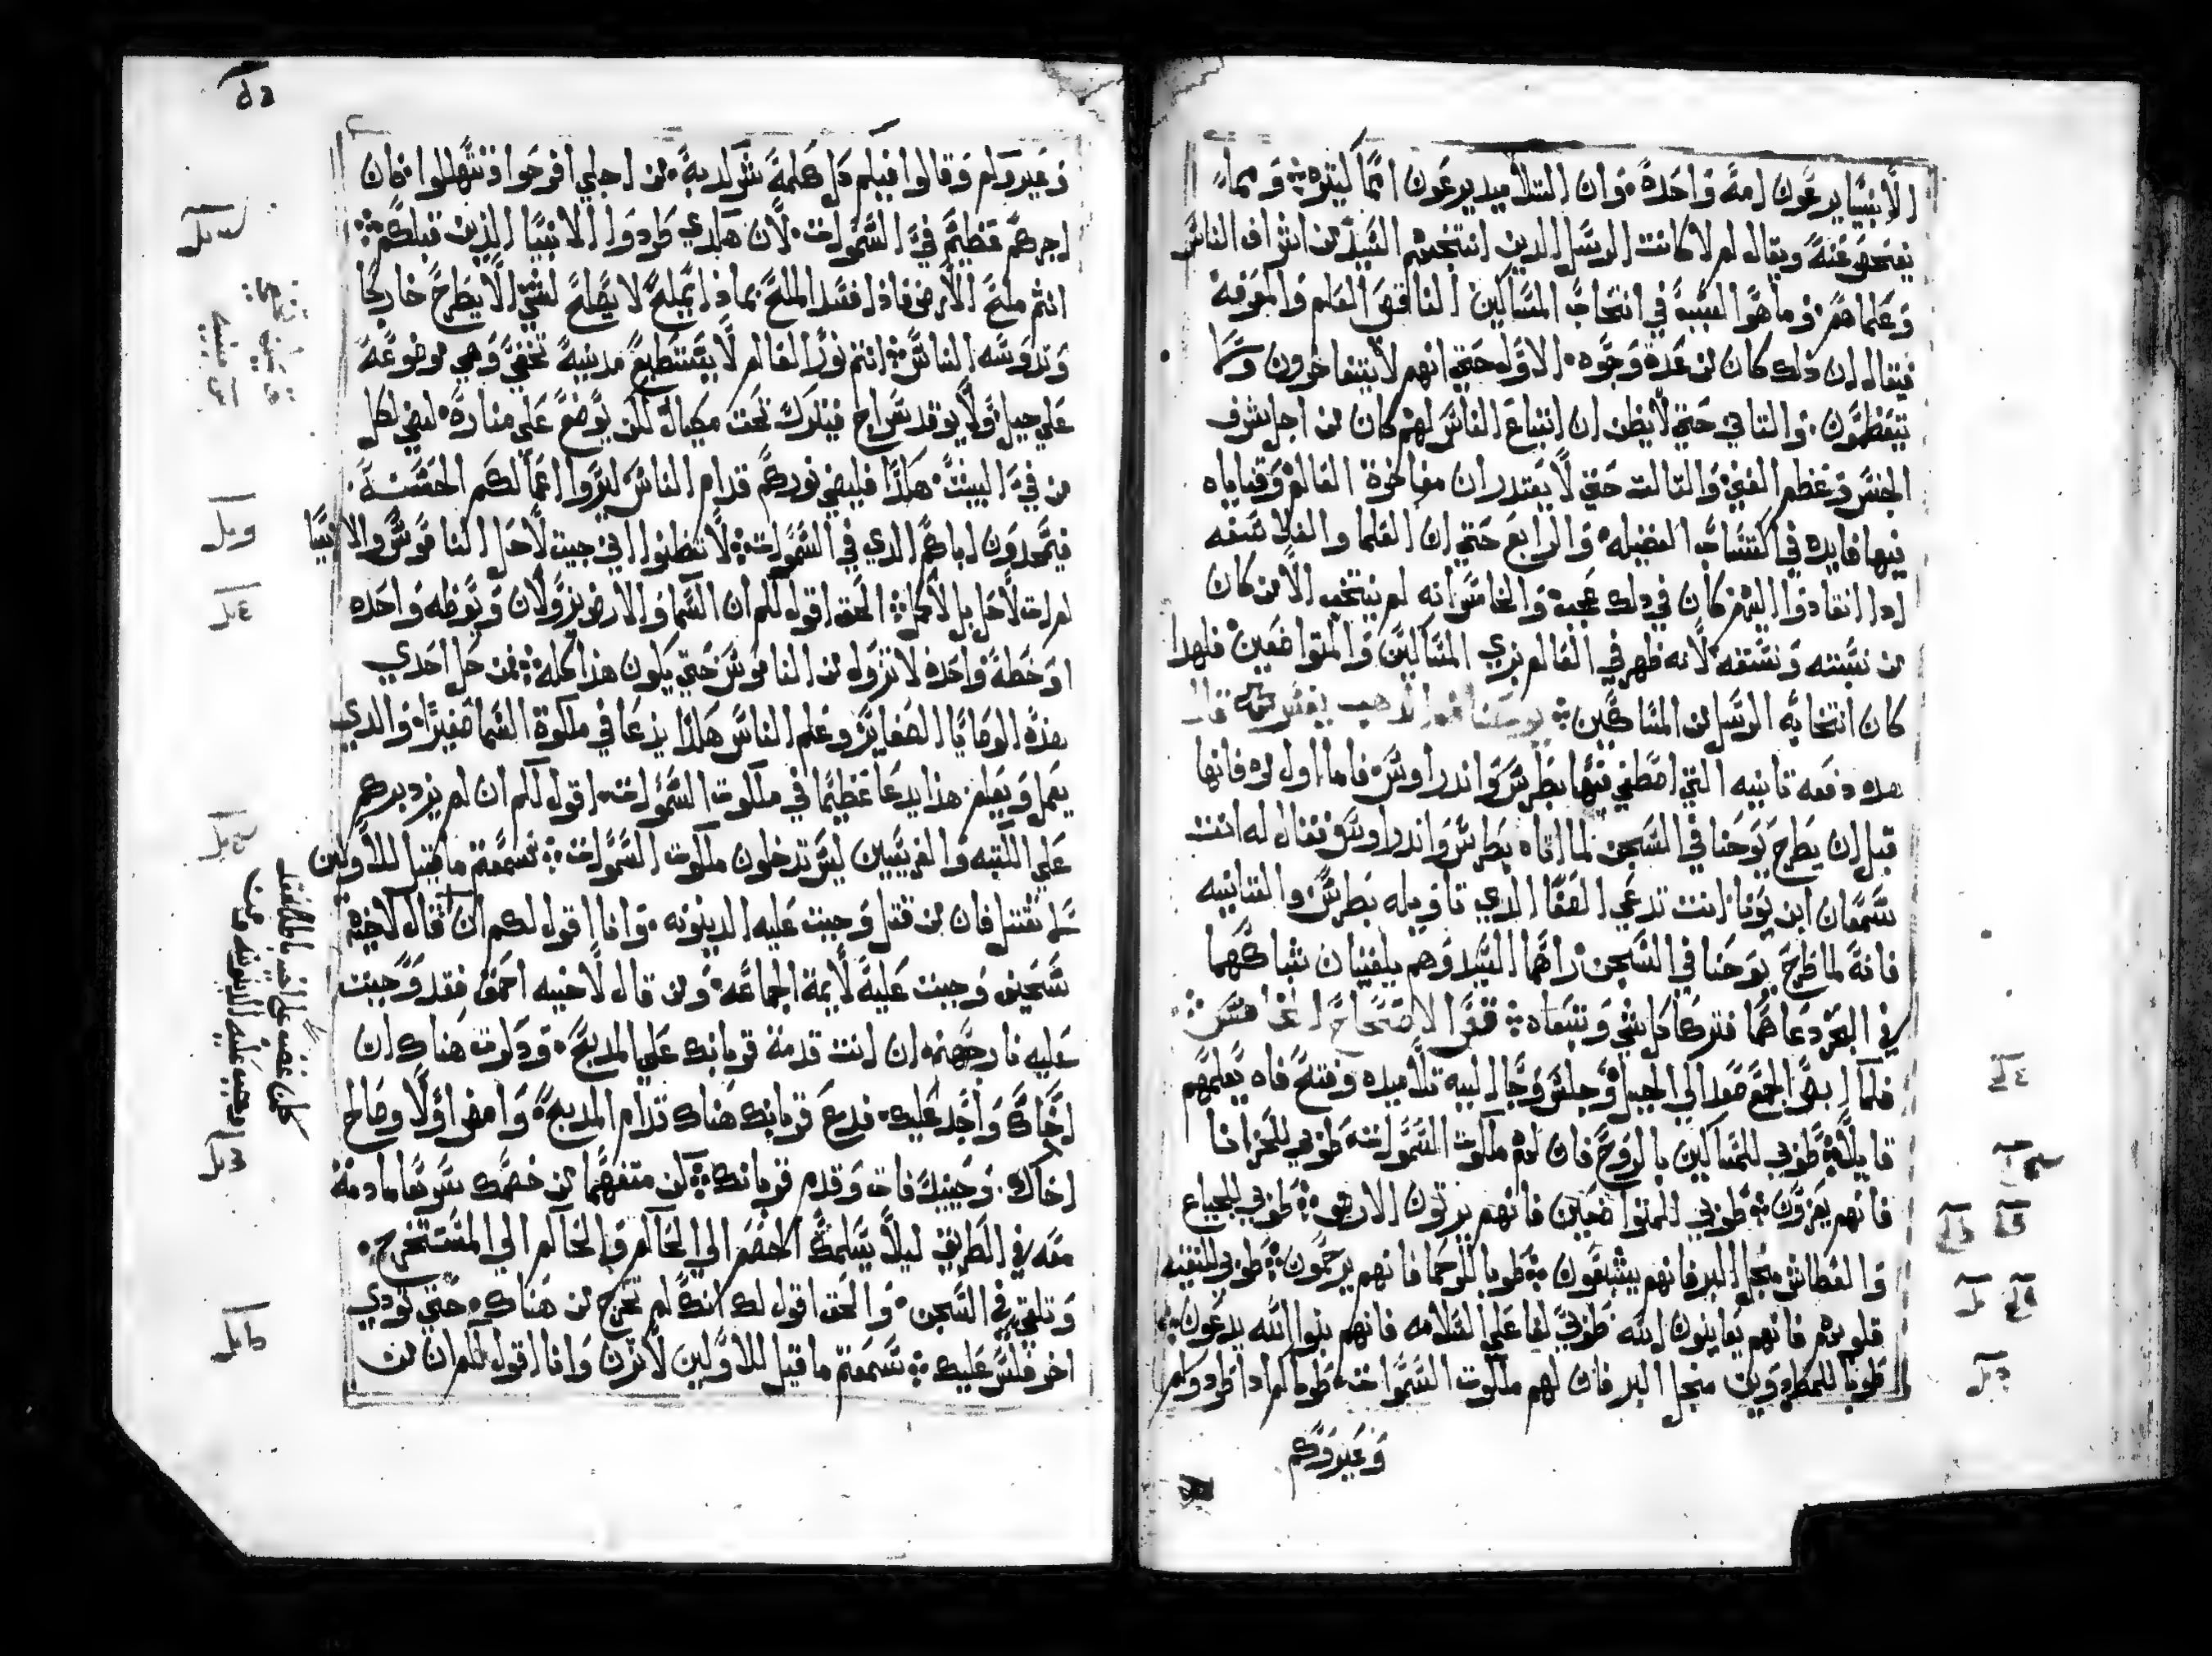 الانبيا يدعون امة واحدة وان التلاميد يدعون امما كثيره ومما
يفتحص عنه ويقال لم لا كانت الرسل الدين انتخبهم السيد من اشراف الناس
وعلماهم وما هو السبب في انتخاب المساكين الناقصي العلم والمعرفة
فيقال ان ذلك كان من عدة وجوه الاول حتي انهم لا يتفاخرون ولا
يتعظمون والثاني حتي لا يظن ان اتباع الناس لهم كان من اجل شرف
الجنس وعظم الغني والثالث حتي لا يعتد ان مفاخرة العالم وقناياه
فيها فايده في اكتساب الفضيله والرابع حتي ان العلما والفلاسفه
ادا انقادوا اليهم كان في دلك عجب والخامس انه لم ينتخب الا من كان
من نسبته ونسقه لانه ظهر في العالم بزي المساكين والمتواضعين فلهدا
كان انتخابه الرسل من المساكين يوحنا فم الدهب يفسر قال
هده دفعه تانيه التي اصطفي فيها بطرس واندراوس فاما اول مره فانها
قبل ان يطرح يوحنا في السجن لما اتاه بطرس واندراوس فقال له انت
سمعان ابن يونا انت تدعي الصفا الدي تاويله بطرس والتانيه
فانه لما طرح يوحنا في السجن راهما السيد وهم يلقيان شباكهما
في البحر دعاهما فتركا كل شي وتبعاه فص الاصحاح الخامس
فلما ابصر الجمع صعد الي الجبل وجلس وجا اليه تلاميده وفتح فاه يعلمهم
قايلا طوبي للمساكين بالروح فان لهم ملكوت السموات طوبي للحزانا
فانهم يعزون طوبي للمتواضعين فانهم يرتون الارض طوبي للجياع
والعطاش منجل البر فانهم يشبعون طوبا للرحما فانهم يرحمون طوبي للنقيه
قلوبهم فانهم يعاينون الله طوبي لفاعلي السلامه فانهم بنوا الله يدعون
طوبا للمطرودين منجل البر فان لهم ملكوت السموات طوباكم ادا طردوكم
وعيروكم
وعيروكم وقالوا فيكم كل كلمة شر كدبة من اجلي افرحوا وتهللوا فان
اجركم عظيم في السموات لان هكدي طردوا الانبيا الذين قبلكم
انتم ملح الارض فاذا فسد الملح بماذا يملح لا يصلح لشي الا يطرح خارجا
وتدوسه الناس انتم نور العالم لا يستطيع مدينة تخفي وهي موضوعة
علي جبل ولا يوقد سراج فيترك تحت مكيال لكن يوضع علي منارة ليضي لكل
من في البيت هكذا فليضي نوركم قدام الناس ليروا اعمالكم الحسنة
فيمجدون اباكم الدي في السموات لا تظنوا اني جيت لاحل الناموس والانبيا
لم ات لاحل بل لاكمل الحق اقول لكم ان السما والارض يزولان ويوطه واحده
او خطة واحدة لا تزول من الناموس حتي يكون هذا كله فمن حل احدي
هذه الوصايا الصغاير وعلم الناس هكذا يدعا في ملكوة السما صغيرا والدي
يعمل ويعلم هذا يدعا عظيما في ملكوت السموات اقول لكم ان لم يزد بركم
علي الكتبه والفريسين ليس تدخلون ملكوت السموات سمعتم ما قيل للاولين
لا تقتل فان من قتل وجبت عليه الدينونه وانا اقول لكم ان قال لاخيه
سخيف وجبت عليه لايمة الجماعه ومن قال لاخيه احمق فقد وجبت
عليه نار جهنم ان انت قدمة قربانك علي المدبح ودكرت هناك ان
اخاك واجد عليك فدع قربانك هناك قدام المدبح وامض اولا وصالح
اخاك وحينيد فات وقدم قربانك كن متفهما من خصمك سريعا مادمة
معه في الطريق ليلا يسلمك الخصم الي الحاكم والحاكم الي المستخرج
وتلقي في السجن والحق اقول لك انك لم تخرج من هناك حتي تودي
اخر فلس عليك سمعتم ما قيل للاولين لا تزن وانا اقول لكم ان من